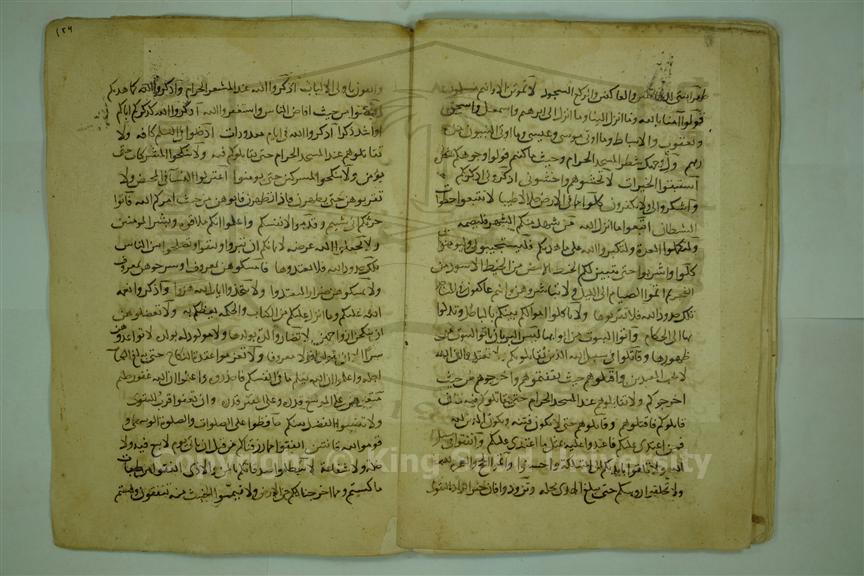 طهرا بيتي للطائفين والعاكفين والركع السجود لا تموتن الا وانتم مسلمون
قولوا امنا بالله وما انزل الينا وما انزل الى ابرهيم واسمعيل واسحق
ويعقوب والاسباط وما اوتي موسى وعيسى وما اوتي النبيون من
ربهم فول وجهك شطر المسجد الحرام وحيث ما كنتم فولوا وجوهكم شطره
فاستبقوا الخيرات لا تخشوهم واخشوني اذكروني اذكركم
واشكروا لي ولا تكفرون كلوا مما في الارض حلالا طيبا لا تتبعوا خطوات
الشيطان اتبعوا ما انزل الله فمن شهد منكم الشهر فليصمه
ولتكملوا العدة ولتكبروا الله على ما هديكم فليستجيبوا لي وليومنوا بي
كلوا واشربوا حتى يتبين لكم الخيط الابيض من الخيط الاسود من
الفجر ثم اتموا الصيام الى الليل ولا تباشروهن وانتم عاكفون في المساجد
تلك حدود الله فلا تقربوها ولا تاكلوا اموالكم بينكم بالباطل وتدلوا
بها الى الحكام واتوا البيوت من ابوابها ليس البر بان تاتوا البيوت من
ظهورها وقاتلوا في سبيل الله الذين يقاتلونكم ولا تعتدوا ان الله
لا يحب المعتدين واقتلوهم حيث ثقفتموهم واخرجوهم من حيث
اخرجوكم ولا تقاتلوهم عند المسجد الحرام حتى يقاتلوكم فيه فان
قاتلوكم فاقتلوهم وقاتلوهم حتى لا تكون فتنة ويكون الدين لله
فمن اعتدى عليكم فاعتدوا عليه بمثل ما اعتدى عليكم واتقوا
الله ولا تلقوا بايديكم الى التهلكة واحسنوا واتموا الحج والعمرة لله
ولا تحلقوا رؤسكم حتى يبلغ الهدي محله وتزودوا فان خير الزاد التقوى
١٢٩
واتقون يا اولي الالباب اذكروا الله عند المشعر الحرام واذكروا الله كما هديكم
افيضوا من حيث افاض الناس واستغفروا الله اذكروا الله كذكركم اباكم
او اشد ذكرا اذكروا الله في ايام معدودات ادخلوا في السلم كافة ولا
تقاتلوهم عند المسجد الحرام حتى يقاتلوكم فيه ولا تنكحوا المشركات حتى
يؤمن ولا تنكحوا المشركين حتى يومنوا اعتزلوا النساء في المحيض ولا
تقربوهن حتى يطهرن فاذا تطهرن فاتوهن من حيث امركم الله فاتوا
حرثكم انى شئتم وقدموا لانفسكم واعلموا انكم ملاقوه وبشر المومنين
ولا تجعلوا الله عرضة لايمانكم ان تبروا وتتقوا وتصلحوا بين الناس
تلك حدود الله فلا تعتدوها فامسكوهن بمعروف او سرحوهن بمعروف
ولا تمسكوهن ضرارا لتعتدوا ولا تتخذوا ايات الله هزوا واذكروا نعمة
الله عليكم وما انزل عليكم من الكتاب والحكمة يعظكم به ولا تعضلوهن
ان ينكحن ازواجهن لا تضار والدة بولدها ولا مولود له بولده لا تواعدوهن
سرا الا ان تقولوا قولا معروفا ولا تعزموا عقدة النكاح حتى يبلغ الكتاب
اجله واعلموا ان الله يعلم ما في انفسكم فاحذروه واعلموا ان الله غفور حليم
متعوهن على الموسع قدره وعلى المقتر قدره وان تعفوا اقرب للتقوى
ولا تنسوا الفضل بينكم حافظوا على الصلوات والصلوة الوسطى و
قوموا لله قانتين انفقوا مما رزقناكم من قبل ان ياتي يوم لا بيع فيه ولا
خلة ولا شفاعة لا تبطلوا صدقاتكم بالمن والاذى انفقوا من طيبات
ما كسبتم ومما اخرجنا لكم من الارض ولا تيمموا الخبيث منه تنفقون ولستم
© King Saud University